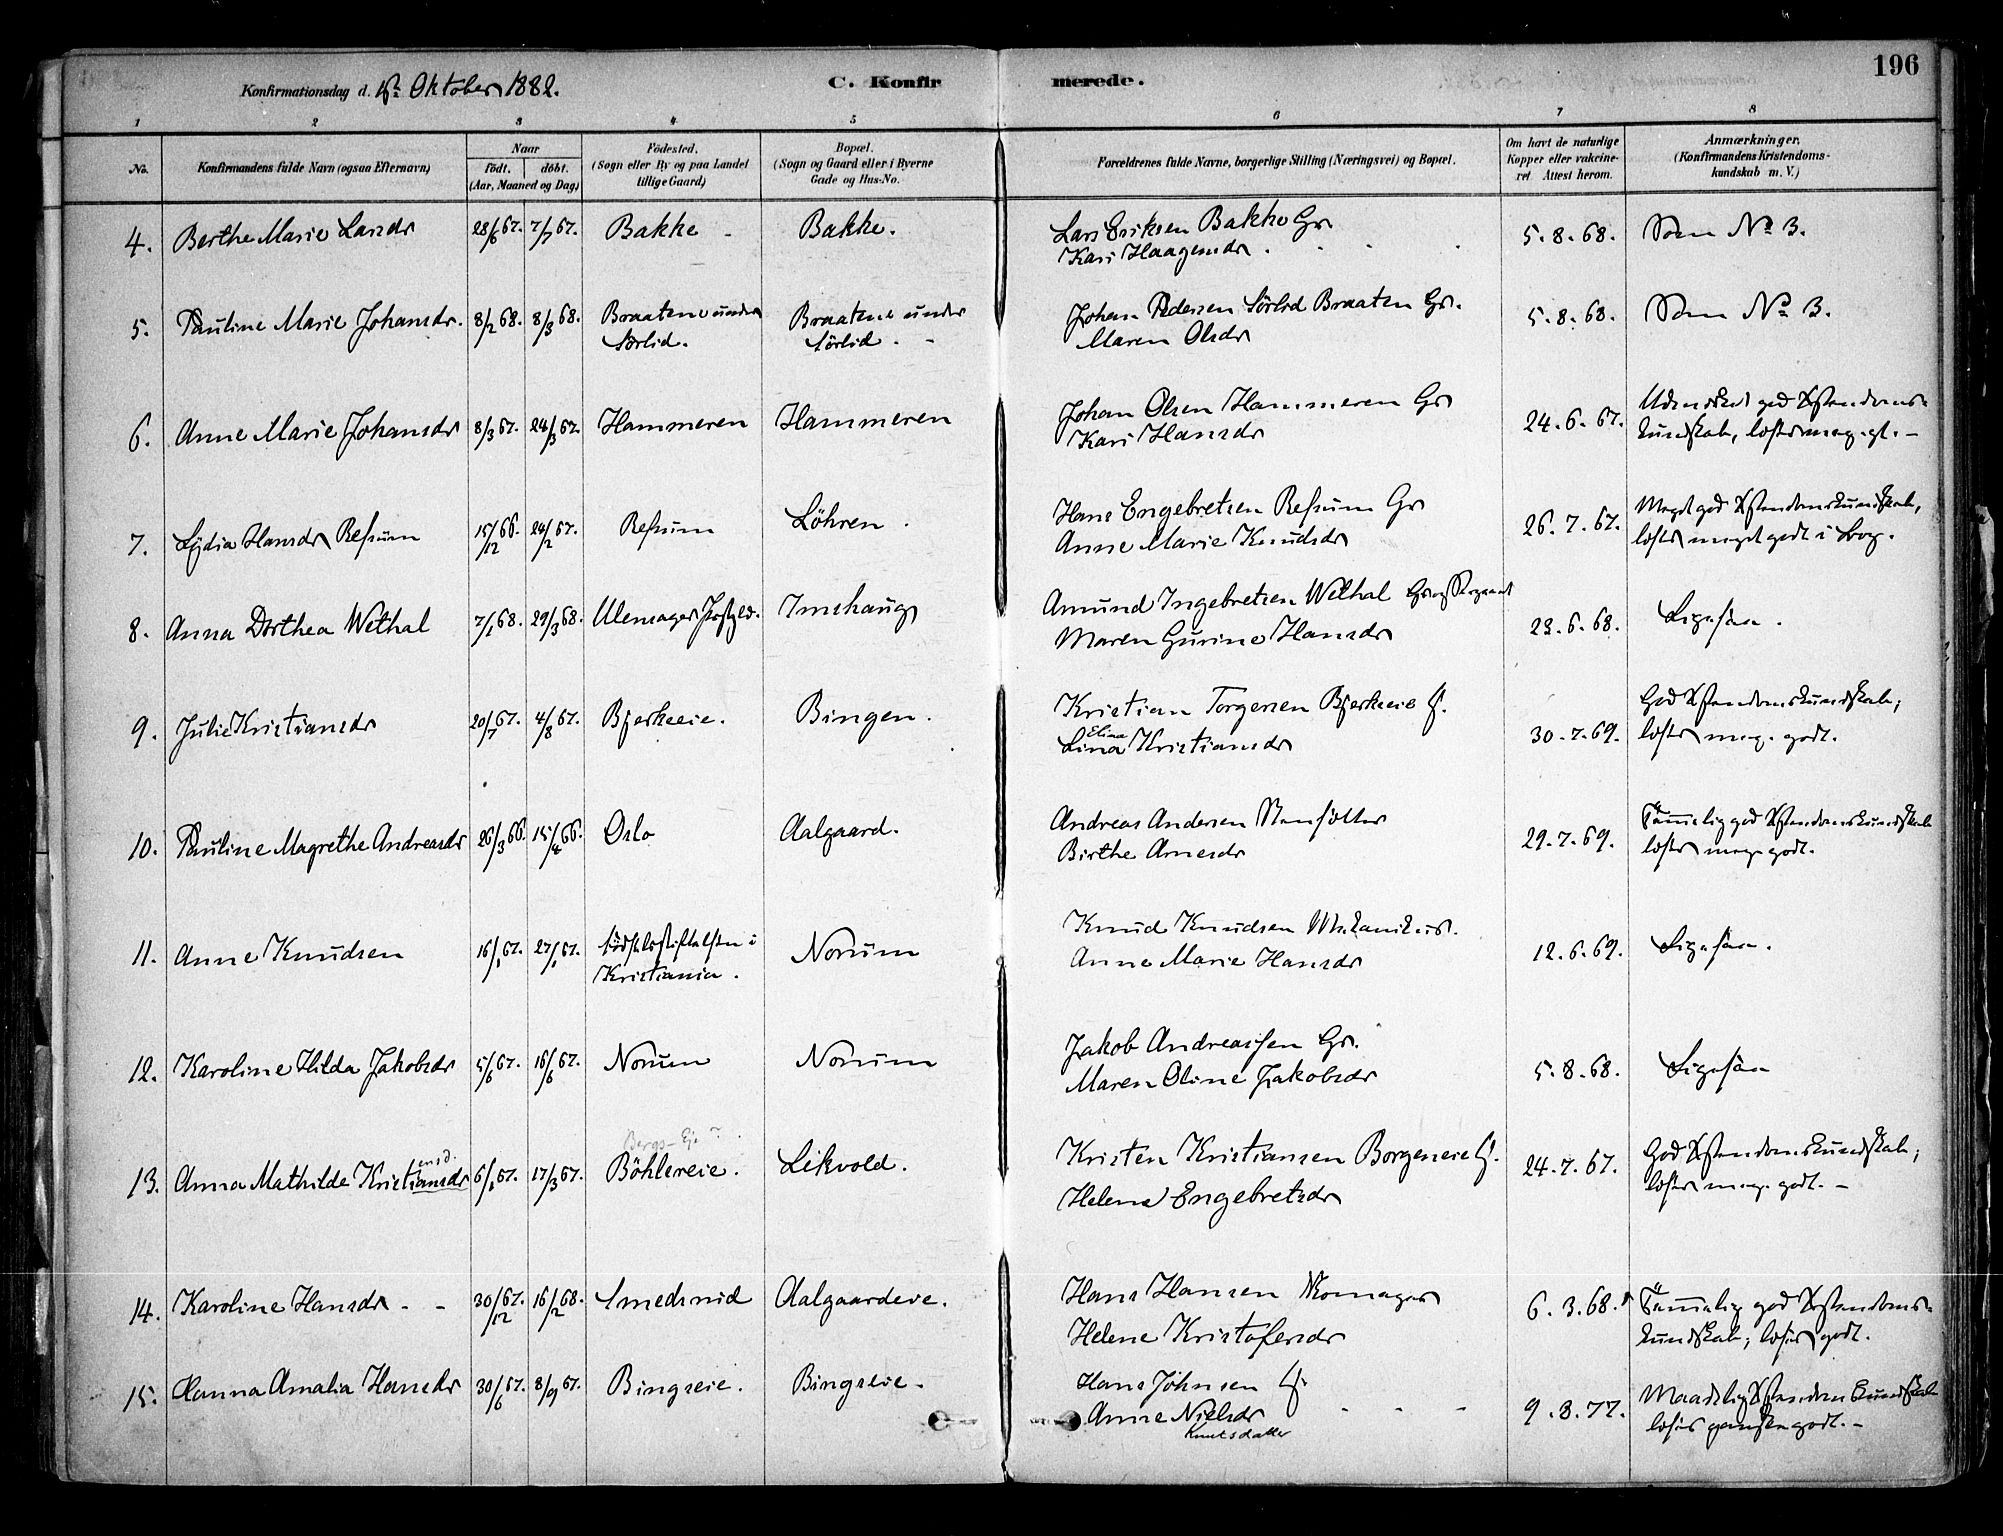 196
Konfirmationsdag d. Oktober 1882.
C. Konfirmerede.
1 2 3 4 5 6 7 8
No.
Konfirmandens fulde Navn (ogsaa Efternavn)
Naar
födt. döbt.
(Aar, Maaned og Dag)
Födested.
(Sogn eller By og paa Landet
tillige Gaard)
Bopæl.
(Sogn og Gaard eller i Byerne
Gade og Hus-No.
Forældrenes fulde Navne, borgerlige Stilling (Næringsvei) og Bopæl.
Om havt de naturlige
Kopper eller vakcine-
ret Attest herom.
Anmærkninger.
(Konfirmandens Kristendoms-
kundskab m. V.)
4. Berthe Marie Larsdr 28/6 67. 7/7 67. Bakke Bakke. Lars Eriksen Bakke Gr 5.8.68. Som No 3.
Kari Haagensdr
5. Pauline Marie Johansdr. 8/2 68. 8/3 68. Braatene under Braatene under Johan Pedersen Sörlid Braaten Gr. 5.8.68. Som No 3.
Sörlid. Sörlid. Maren Olsdr
6. Anne Marie Johansdr 8/3 67. 24/3 67. Hammeren Hammeren Johan Olsen Hammeren Gr 24.6.67. Udmærket god Xstendoms-
Kari Hansdr kundskab, læser meg. gt. -
7. Lydia Hansdr Refsum 15/12 66. 24/2 67. Refsum Löhren. Hans Engebretsen Refsum Gr 26.7.67. Meget god Xstendomskundskab,
Anne Marie Knudsdr læser meget godt i Bog.
8. Anna Dorthea Wethal 7/1 68. 29/3 68. Ulensager Imshaug Amund Ingebretsen Wethal 23.6.68. Ligesaa.
Maren Gurine Hansdr
9. Julie Kristiansdr 20/7 67. 4/8 67. Bjerkeeie. Bingen. Kristian Torgersen Bjerkeeie 30.7.69. God Xstendomskundskab;
Elina
Lina Kristiansdr læser meg. godt.
10. Pauline Magrethe Andreasdr 26/3 66. 15/4 66. Oslo Aalgaard. Andreas Andersen 29.7.69. Temmelig god Xstendomskundskab
Birthe Arnesdr læser meg. godt.
11. Anne Knudsen 16/1 67. 27/1 67. Födselsstiftelsen i Norum Knud Knudsen Mekanikus. 12.6.69. Ligesaa.
Kristiania. Anne Marie Hansdr
12. Karoline Hilda Jakobsdr 5/6 67. 16/6 67. Norum Norum Jakob Andreassen Gr. 5.8.68. Ligesaa
Maren Oline Jakobsdr
Bergs-Eje ?
ensd.
13. Anna Mathilde Kristiansdr 6/1 67. 17/3 67. Böhlereie. Likvold. Kristen Kristiansen Borgeneie 24.7.67. God Xstendomskundskab;
Helene Engebretsdr læser meg. godt. -
14. Karoline Hansdr - - 30/12 67. 16/2 68. Smedsrud Aalgaardeie. Hans Hansen Skomager 6.3.68. Temmelig god Xstendoms-
Helene Kristofersdr kundskab; læser godt.
15. Hanna Amalia Hansdr 30/6 67. 8/9 67. Bingseie. Bingseie. Hans Johnsen 9.8.77. Maadelig Xstendomskundskab
Anne Nielsdr læser ganske godt. -
Knutsdatter